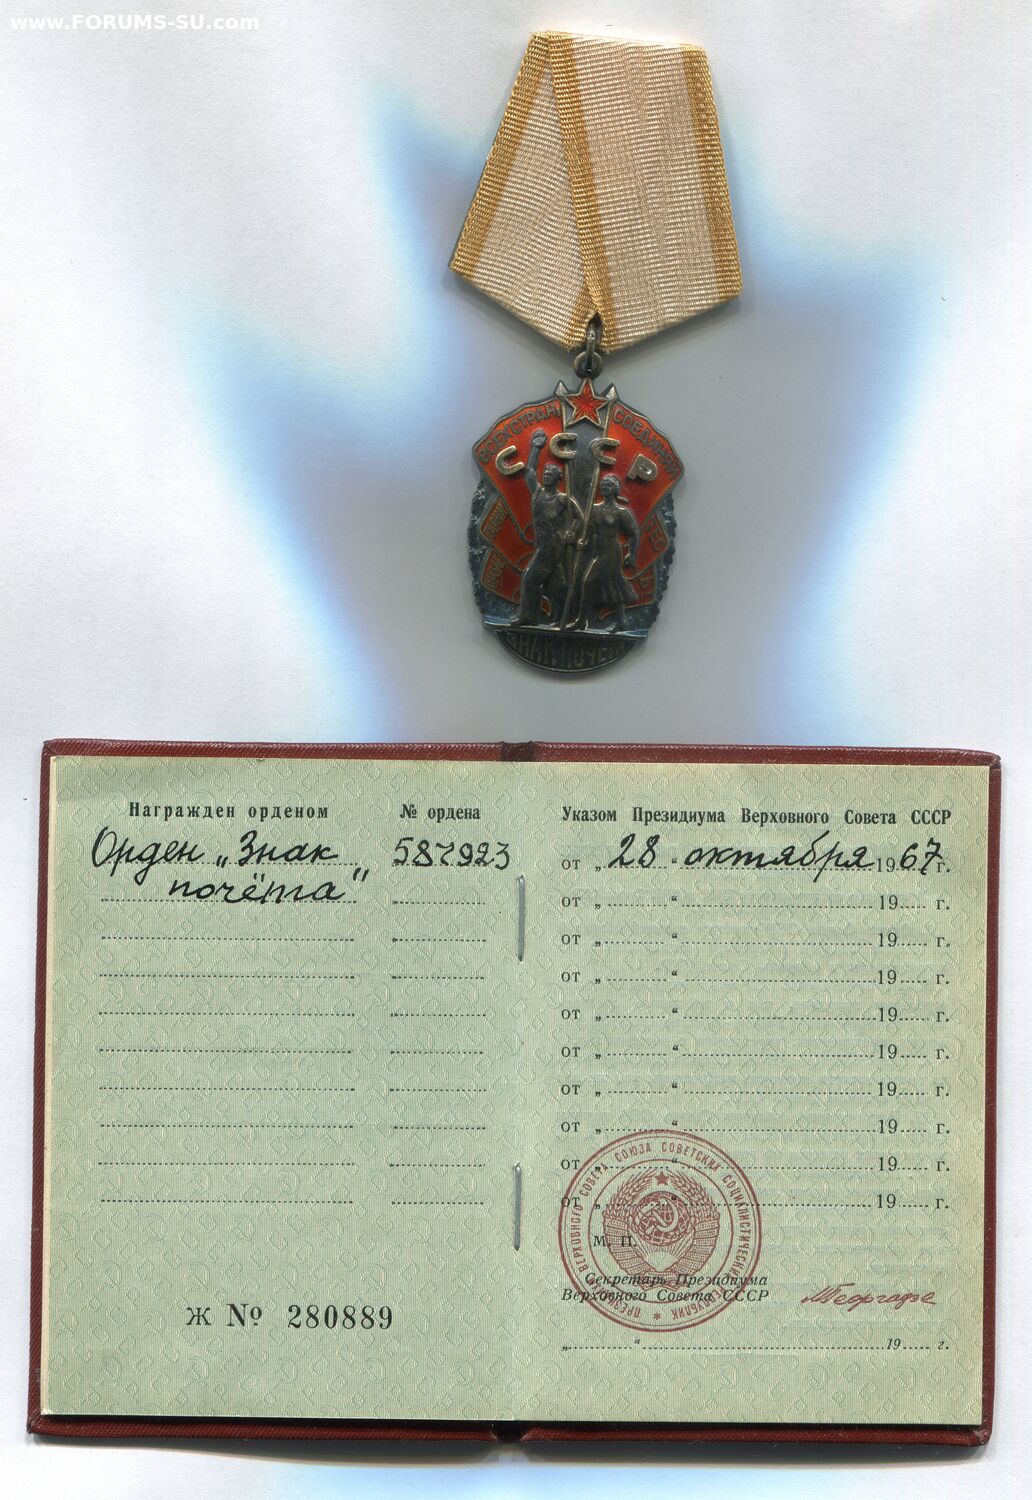 www.FORUMS-SU.com
ВСЕХ СТРАН СОЕДИНЯЙ
СССР
ТЕС
Ь!
ЗНАК ПОЧЕТА
Награжден орденом № ордена
Орден „Знак 587923
почёта"
Ж № 280889
Указом Президиума Верховного Совета СССР
от „28“ октября 1967г.
от „ “ 19 г.
от „ “ 19 г.
от „ “ 19 г.
от „ “ 19 г.
от „ “ 19 г.
от „ “ 19 г.
от „ “ 19 г.
от „ “ 19 г.
от „ “ 19 г.
ПРЕЗИДИУМ ВЕРХОВНОГО СОВЕТА СОЮЗА СОВЕТСКИХ СОЦИАЛИСТИЧЕСКИХ РЕСПУБЛИК
М. П.
Секретарь Президиума
Верховного Совета СССР МГеоргадзе
„ “ 19 г.